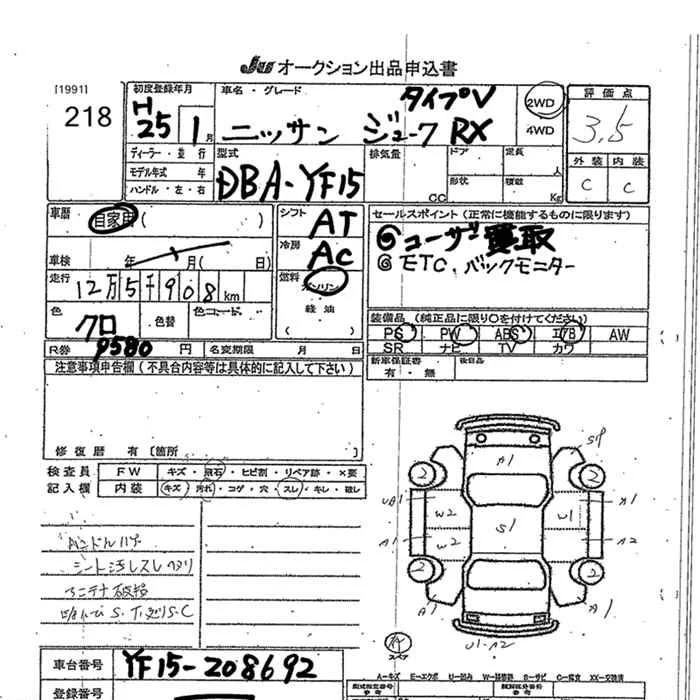 JU オークション出品申込書
[1991]
218
初度登録年月
H
25 1 月
車名・グレード
タイプV
ニッサン ジューク RX
2WD
4WD
評価点
3.5
ディーラー・並行
モデル年式 年
ハンドル・左・右
型式
DBA-YF15
排気量
CC
ドア
形状
定員
人
積載
Kg
外装 内装
C C
車歴
自家用 (
)
シフト
AT
セールスポイント (正常に機能するものに限ります)
◎ユーザー買取
◎ETC、バックモニター
冷房
AC
車検 年 月 ( 日)
走行
12万5千908 km
燃料
ガソリン
軽油
( )
色
クロ
色替
色コード
装備品 (純正品に限り○を付けてください)
PS PW ABS エアB AW
SR ナビ TV カワ
R券 9580 円
名変期限 月 日
新車保証書
有・無
後日品
注意事項申告欄 (不具合内容等は具体的に記入して下さい)
修復歴 有 [箇所 ]
検査員
記入欄
FW キズ・飛石・ヒビ割・リペア跡・×要
内装 キズ・汚れ・コゲ・穴・スレ・キレ・破レ
ハンドルハゲ
アンテナ破損
A1
2 2
W2 U1
S1
A1 W2 A2
2 2
A1 A1
U1-A2
車台番号 YF15-208692
登録番号
A=キズ E=エクボ U=凹み